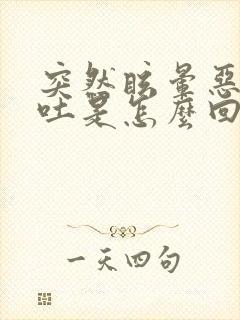 突然眩暈惡
吐是怎麼回
一天四句